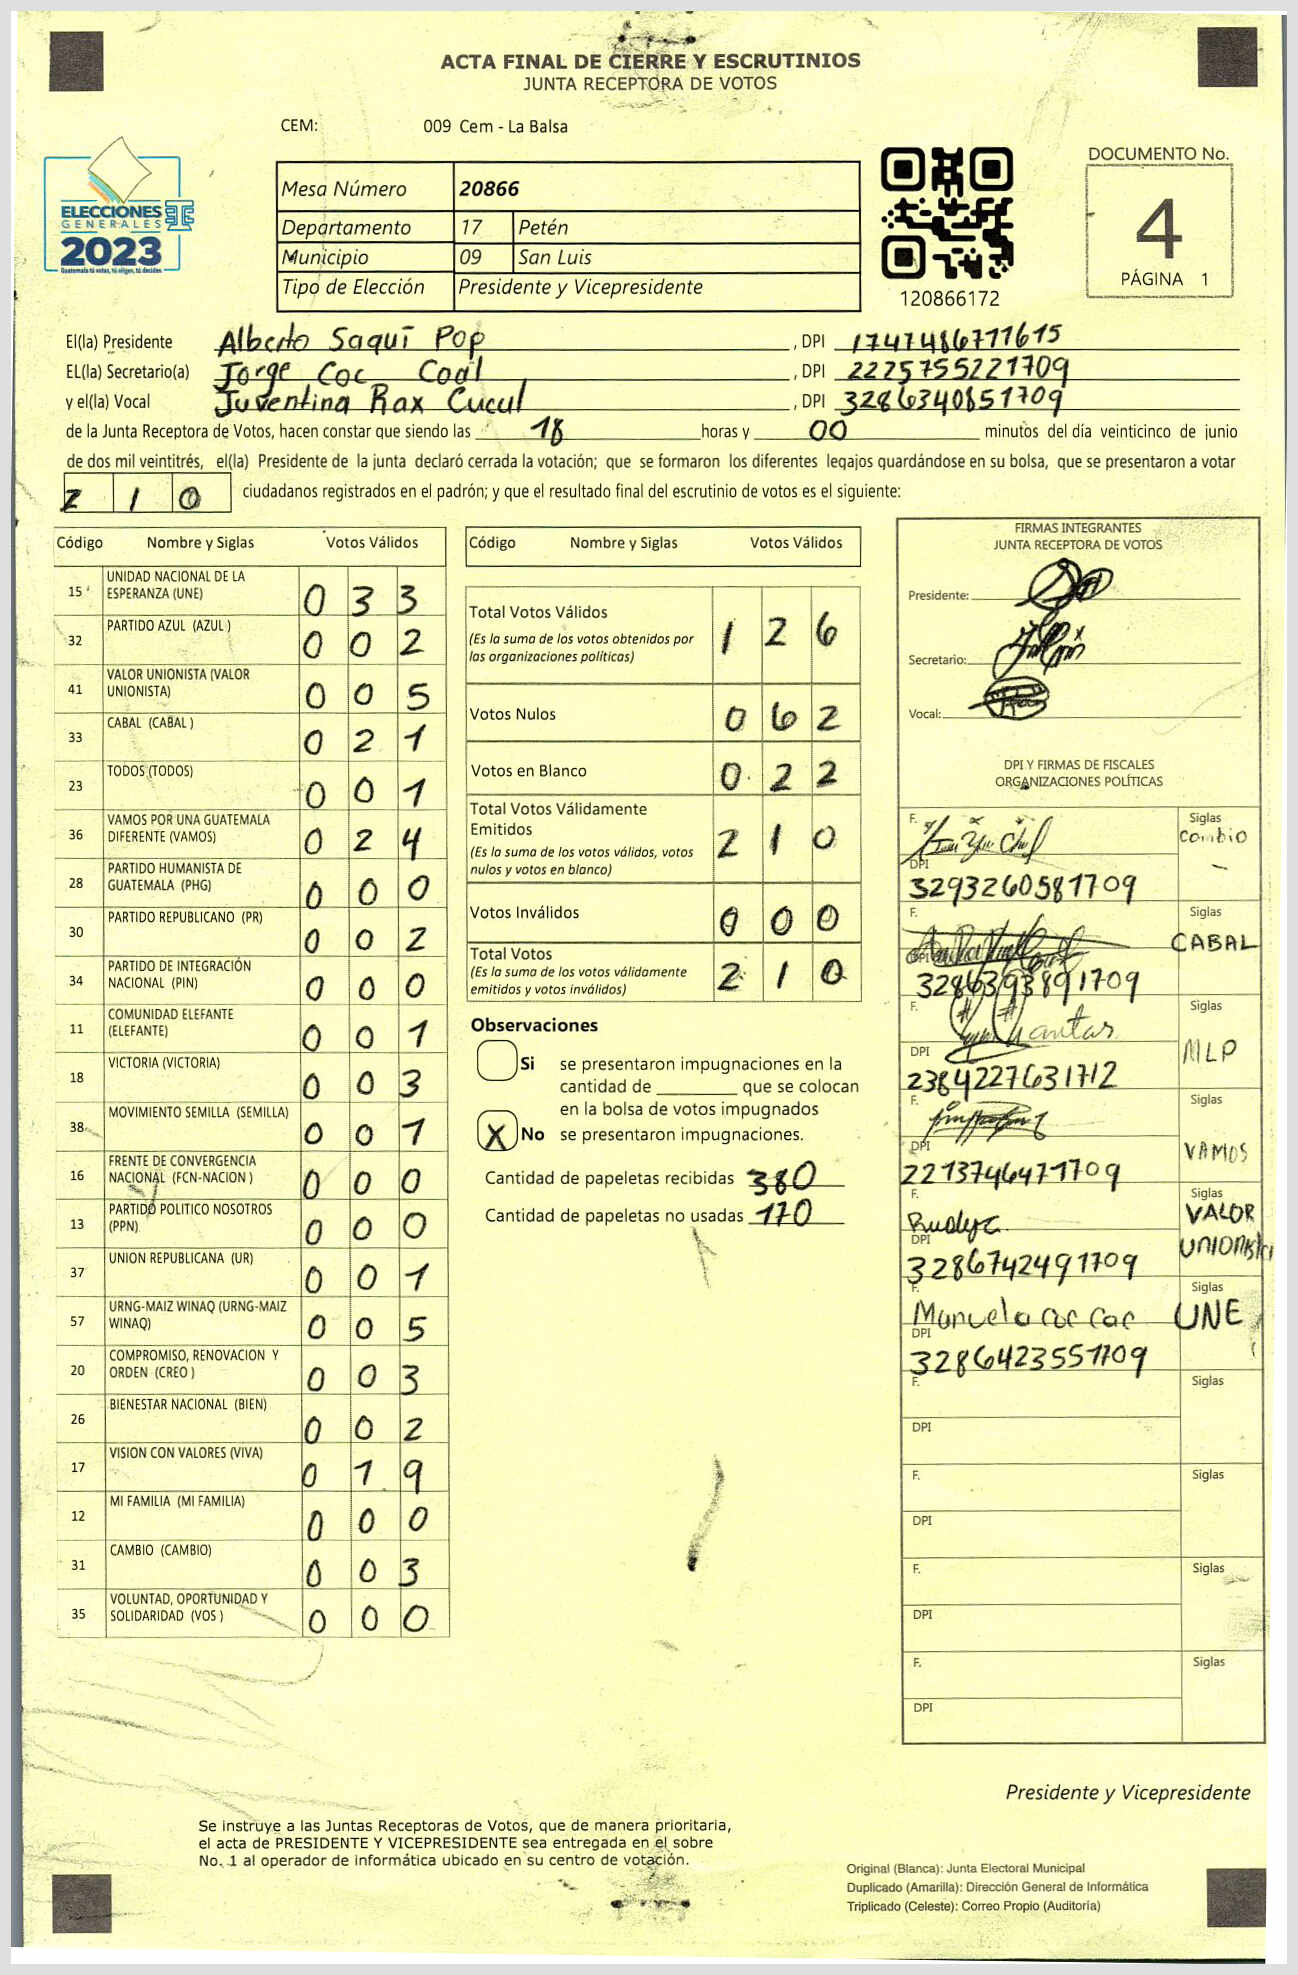 ACTA FINAL DE CIERRE Y ESCRUTINIOS
JUNTA RECEPTORA DE VOTOS
CEM: 009 Cem - La Balsa
ELECCIONES
GENERALES
2023
Guatemala tú votas, tú eliges, tú decides
Mesa Número 20866
Departamento 17 Petén
Municipio 09 San Luis
Tipo de Elección Presidente y Vicepresidente
120866172
DOCUMENTO No.
4
PÁGINA 1
El(la) Presidente Alberto Saquí Pop, DPI 1747486711615
EL(la) Secretario(a) Jorge Coc Coal, DPI 2225755221709
y el(la) Vocal Juventina Rax Cucul, DPI 3286340851709
de la Junta Receptora de Votos, hacen constar que siendo las 18 horas y 00 minutos del día veinticinco de junio
de dos mil veintitrés, el(la) Presidente de la junta declaró cerrada la votación; que se formaron los diferentes legajos guardándose en su bolsa, que se presentaron a votar
210 ciudadanos registrados en el padrón; y que el resultado final del escrutinio de votos es el siguiente:
Código Nombre y Siglas Votos Válidos
15 UNIDAD NACIONAL DE LA
ESPERANZA (UNE) 0 3 3
32 PARTIDO AZUL (AZUL ) 0 0 2
41 VALOR UNIONISTA (VALOR
UNIONISTA) 0 0 5
33 CABAL (CABAL ) 0 2 1
23 TODOS (TODOS) 0 0 1
36 VAMOS POR UNA GUATEMALA
DIFERENTE (VAMOS) 0 2 4
28 PARTIDO HUMANISTA DE
GUATEMALA (PHG) 0 0 0
30 PARTIDO REPUBLICANO (PR) 0 0 2
34 PARTIDO DE INTEGRACIÓN
NACIONAL (PIN) 0 0 0
11 COMUNIDAD ELEFANTE
(ELEFANTE) 0 0 1
18 VICTORIA (VICTORIA) 0 0 3
38 MOVIMIENTO SEMILLA (SEMILLA) 0 0 1
16 FRENTE DE CONVERGENCIA
NACIONAL (FCN-NACION ) 0 0 0
13 PARTIDO POLITICO NOSOTROS
(PPN) 0 0 0
37 UNION REPUBLICANA (UR) 0 0 1
57 URNG-MAIZ WINAQ (URNG-MAIZ
WINAQ) 0 0 5
20 COMPROMISO, RENOVACION Y
ORDEN (CREO ) 0 0 3
26 BIENESTAR NACIONAL (BIEN) 0 0 2
17 VISION CON VALORES (VIVA) 0 1 9
12 MI FAMILIA (MI FAMILIA) 0 0 0
31 CAMBIO (CAMBIO) 0 0 3
35 VOLUNTAD, OPORTUNIDAD Y
SOLIDARIDAD (VOS ) 0 0 0
Código Nombre y Siglas Votos Válidos
Total Votos Válidos 1 2 6
(Es la suma de los votos obtenidos por
las organizaciones políticas)
Votos Nulos 0 6 2
Votos en Blanco 0 2 2
Total Votos Válidamente
Emitidos 2 1 0
(Es la suma de los votos válidos, votos
nulos y votos en blanco)
Votos Inválidos 0 0 0
Total Votos 2 1 0
(Es la suma de los votos válidamente
emitidos y votos inválidos)
Observaciones
Si se presentaron impugnaciones en la
cantidad de ________ que se colocan
en la bolsa de votos impugnados
X No se presentaron impugnaciones.
Cantidad de papeletas recibidas 380
Cantidad de papeletas no usadas 170
FIRMAS INTEGRANTES
JUNTA RECEPTORA DE VOTOS
Presidente:
Secretario:
Vocal:
DPI Y FIRMAS DE FISCALES
ORGANIZACIONES POLÍTICAS
F. Siglas
Combio
DPI
3293260581709
F. Siglas
CABAL
DPI
3286393891709
F. Siglas
MLP
DPI
2384227631712
F. Siglas
VAMOS
DPI
2213746471709
F. Siglas
VALOR
UNIONISTA
DPI
3286742491709
F. Manuela Coc Cac Siglas
UNE
DPI
3286423551709
F. Siglas
DPI
F. Siglas
DPI
F. Siglas
DPI
F. Siglas
DPI
Presidente y Vicepresidente
Se instruye a las Juntas Receptoras de Votos, que de manera prioritaria,
el acta de PRESIDENTE Y VICEPRESIDENTE sea entregada en el sobre
No. 1 al operador de informática ubicado en su centro de votación.
Original (Blanca): Junta Electoral Municipal
Duplicado (Amarilla): Dirección General de Informática
Triplicado (Celeste): Correo Propio (Auditoría)